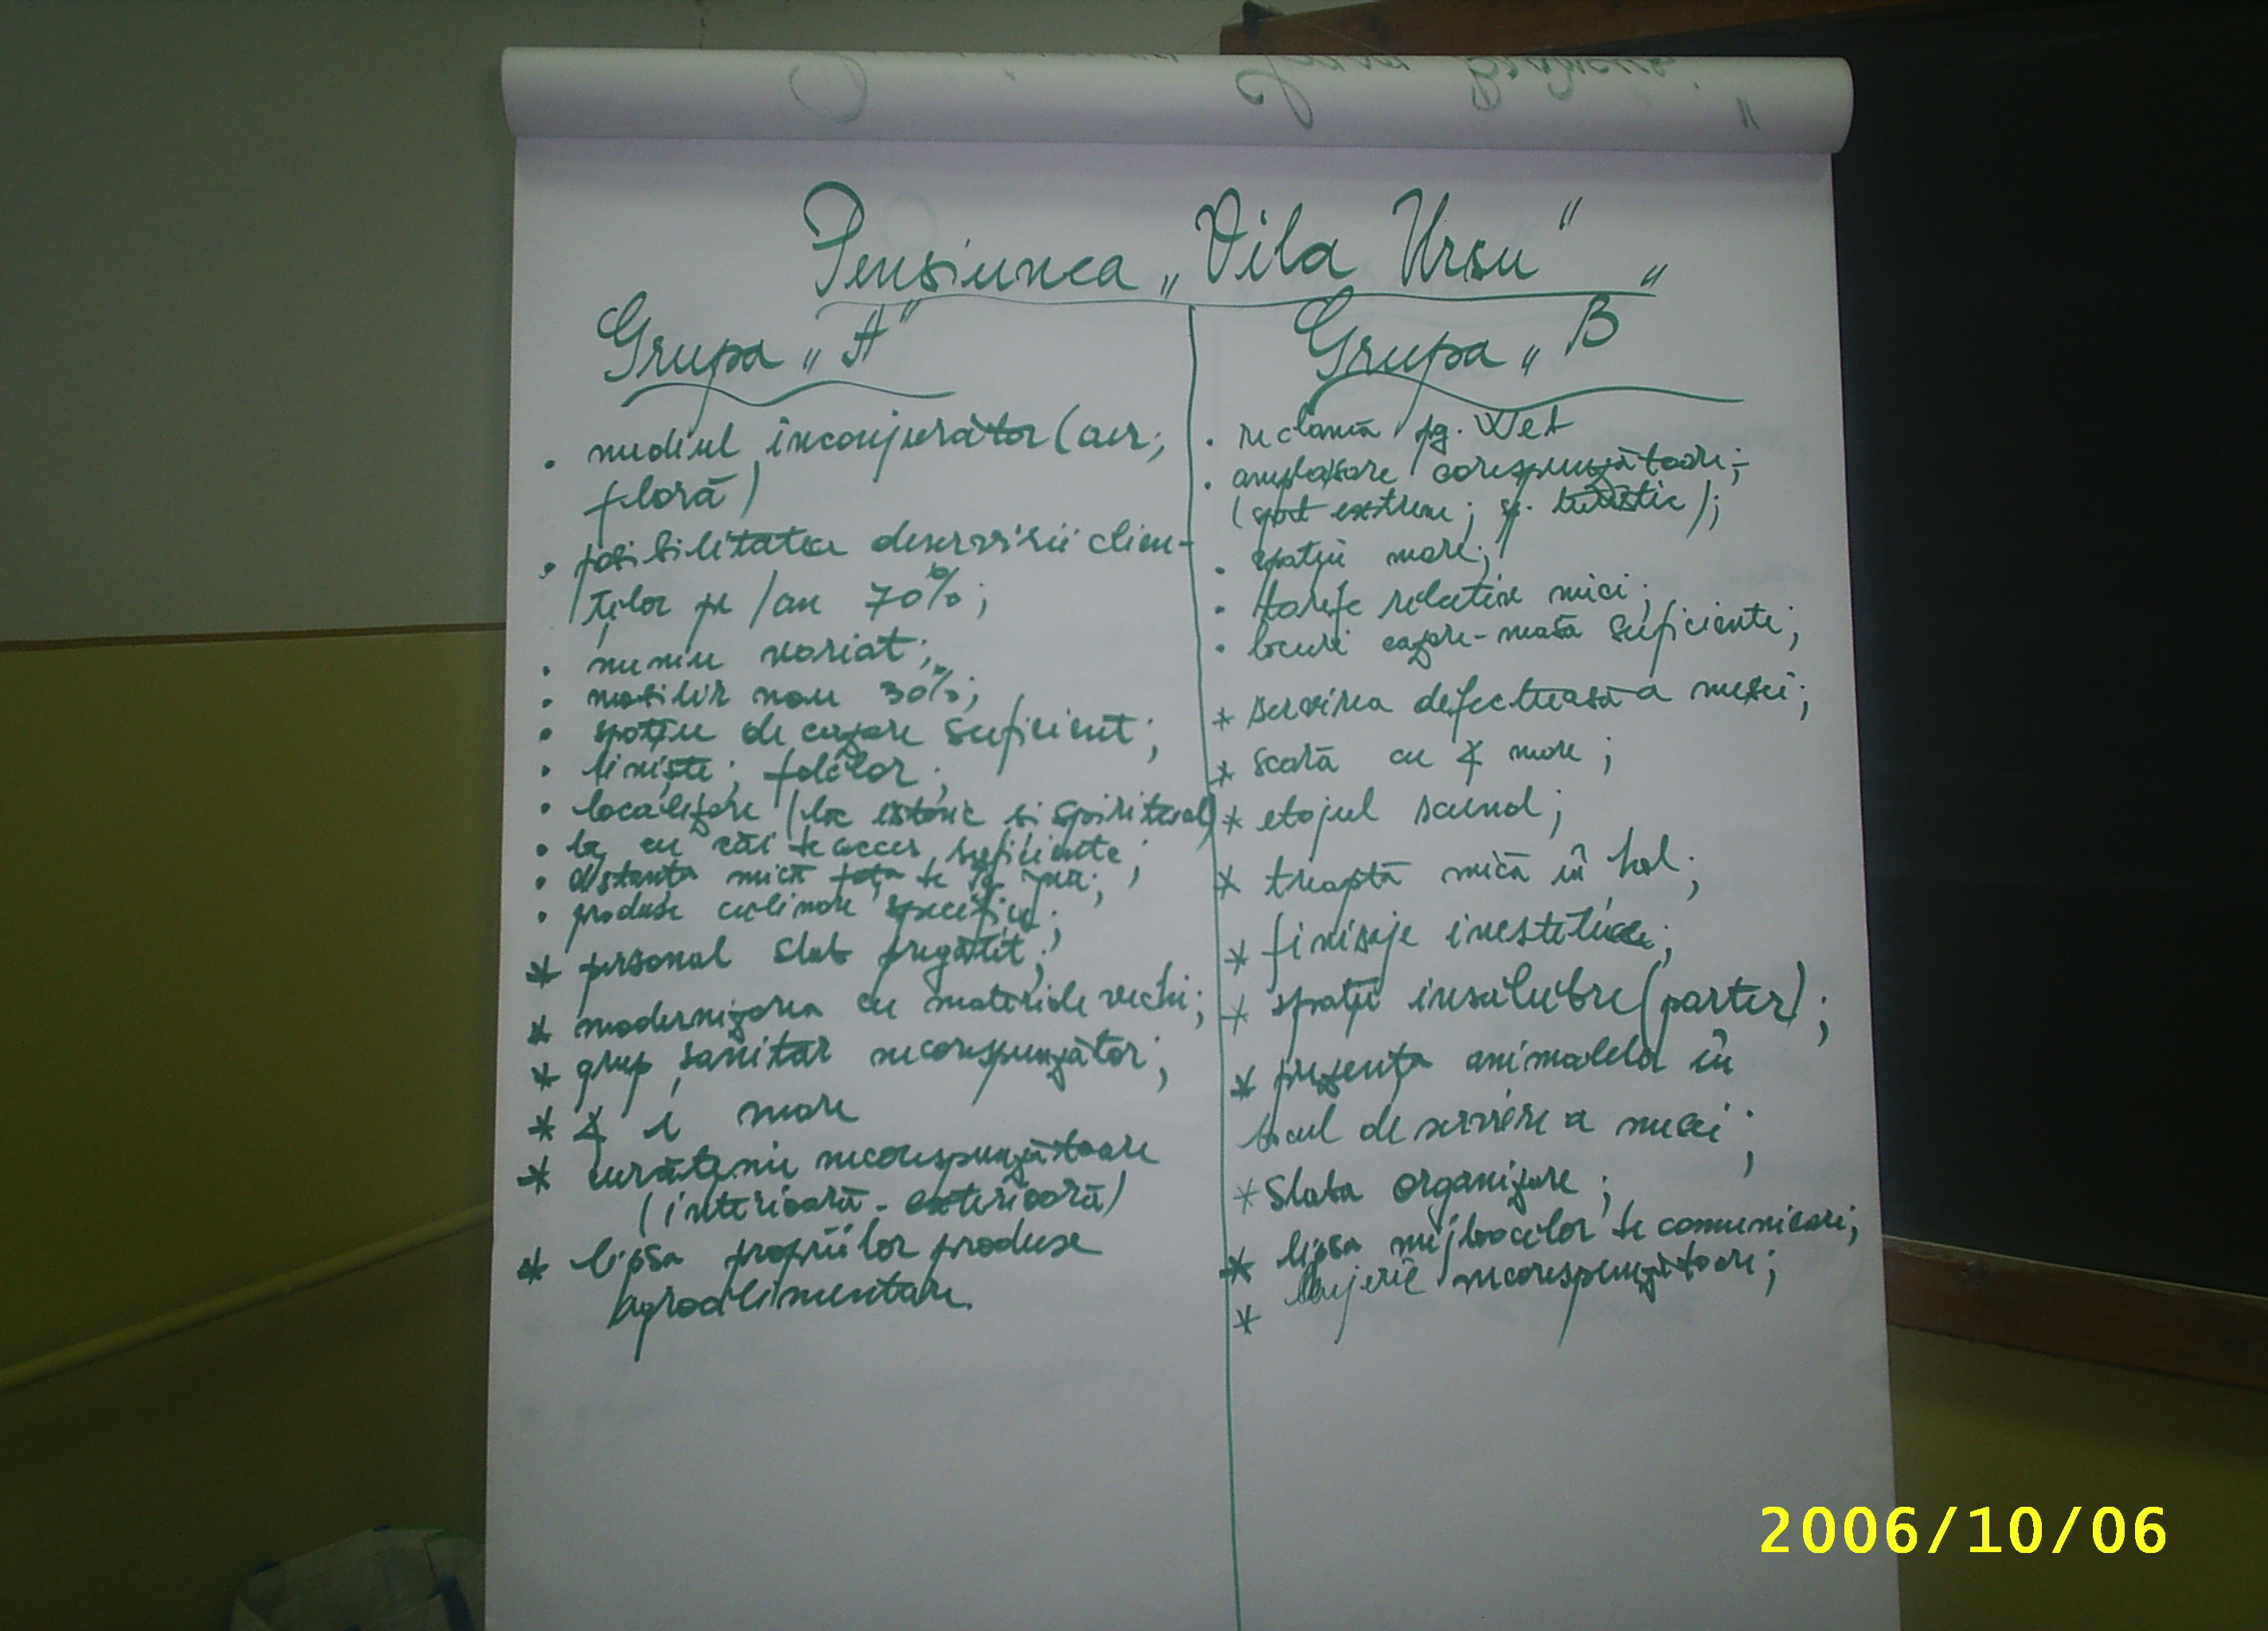 Pensiunea „Vila Ursu"
Grupa „A"
• mediul înconjurător (aer;
floră)
• posibilitatea deservirii clien-
ților pe /an 70%;
• meniu variat;
• mobilir nou 30%;
• spațiu de cazare suficient;
• liniște; folclor;
• localizare (loc istoric si spiritual)
• căi de acces suficiente;
• distanta mică față de
• produse culinare specifice;
* personal slab pregătit;
* modernizarea cu materiale vechi;
* grup sanitar necorespunzător;
* ∡ i mare
* curățenie necorespunzătoare
(interioară - exterioară)
* lipsa propriilor produse
agroalimentare.
Grupa „B"
• reclamă pg. Wet
• amplasare corespunzătoare;
(sport extrem; turistic);
• spații mari;
• tarife relativ mici;
• locuri cazare-masă suficiente;
* servirea defectuasă a mesei;
* scară cu ∡ mare;
* etajul scund;
* treaptă mică în hol;
* finisaje inestetice;
* spații insalubre (parter);
* prezența animalelor în
locul de servire a mesei;
* Slaba organizare;
* lipsa mijloacelor de comunicari;
* lenjerie necorespunzătoare;
2006/10/06